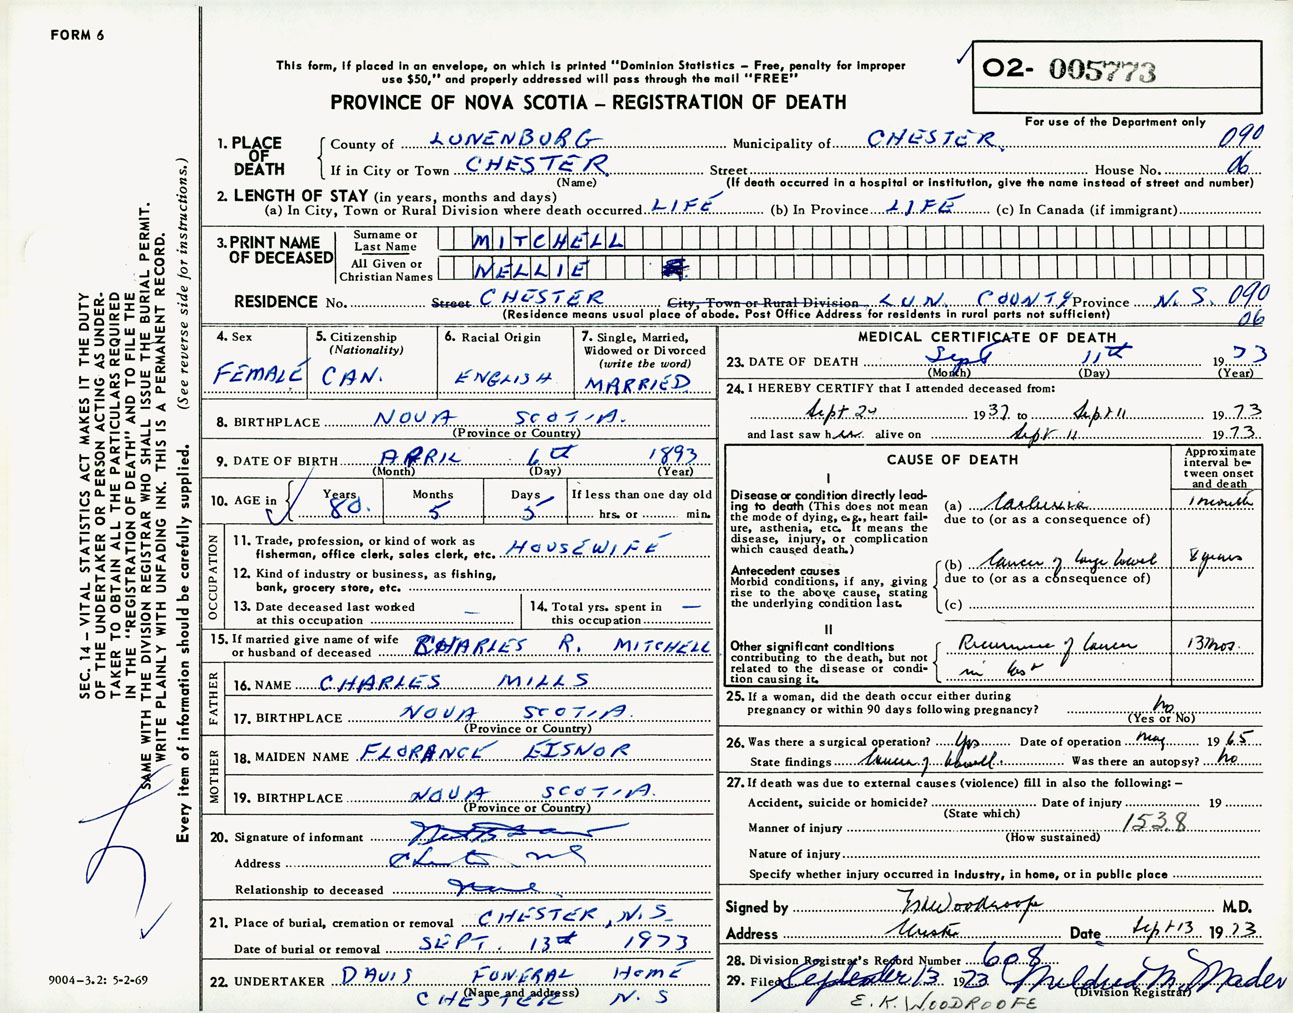 FORM 6
This form, if placed in an envelope, on which is printed "Dominion Statistics – Free, penalty for improper
use $50," and properly addressed will pass through the mail "FREE"
PROVINCE OF NOVA SCOTIA – REGISTRATION OF DEATH
02- 005773
For use of the Department only
1. PLACE OF DEATH
County of LUNENBURG Municipality of CHESTER. 090
If in City or Town CHESTER Street House No. 06
(Name) (If death occurred in a hospital or institution, give the name instead of street and number)
2. LENGTH OF STAY (in years, months and days)
(a) In City, Town or Rural Division where death occurred LIFE (b) In Province LIFE (c) In Canada (if immigrant)
3. PRINT NAME OF DECEASED
Surname or Last Name MITCHELL
All Given or Christian Names NELLIE
RESIDENCE No. Street CHESTER City, Town or Rural Division LUN. COUNTY Province N.S. 090
(Residence means usual place of abode. Post Office Address for residents in rural parts not sufficient) 06
4. Sex FEMALE
5. Citizenship (Nationality) CAN.
6. Racial Origin ENGLISH
7. Single, Married, Widowed or Divorced (write the word) MARRIED
8. BIRTHPLACE NOVA SCOTIA.
(Province or Country)
9. DATE OF BIRTH APRIL 6th 1893
(Month) (Day) (Year)
10. AGE in Years 80. Months 5 Days 5 If less than one day old
hrs. or min.
OCCUPATION
11. Trade, profession, or kind of work as
fisherman, office clerk, sales clerk, etc. HOUSEWIFE
12. Kind of industry or business, as fishing,
bank, grocery store, etc.
13. Date deceased last worked at this occupation —
14. Total yrs. spent in this occupation —
15. If married give name of wife
or husband of deceased CHARLES R. MITCHELL
FATHER
16. NAME CHARLES MILLS
17. BIRTHPLACE NOVA SCOTIA.
(Province or Country)
MOTHER
18. MAIDEN NAME FLORANCE EISNOR
19. BIRTHPLACE NOVA SCOTIA.
(Province or Country)
20. Signature of informant
Address
Relationship to deceased
21. Place of burial, cremation or removal CHESTER, N.S.
Date of burial or removal SEPT. 13th 1973
22. UNDERTAKER DAVIS FUNERAL HOME
(Name and address)
CHESTER N.S
MEDICAL CERTIFICATE OF DEATH
23. DATE OF DEATH Sept 11th 1973
(Month) (Day) (Year)
24. I HEREBY CERTIFY that I attended deceased from:
Sept 20 1937 to Sept 11 1973
and last saw her alive on Sept 11 1973.
CAUSE OF DEATH
Approximate interval between onset and death
I
Disease or condition directly lead-
ing to death (This does not mean
the mode of dying, e.g., heart fail-
ure, asthenia, etc. It means the
disease, injury, or complication
which caused death.)
(a) 1 month
due to (or as a consequence of)
Antecedent causes
Morbid conditions, if any, giving
rise to the above cause, stating
the underlying condition last.
(b) Cancer of large bowel 8 years
due to (or as a consequence of)
(c)
II
Other significant conditions
contributing to the death, but not
related to the disease or condi-
tion causing it.
Recurrence of Cancer 13 mos.
in
25. If a woman, did the death occur either during
pregnancy or within 90 days following pregnancy? no
(Yes or No)
26. Was there a surgical operation? Yes Date of operation May 1965
State findings Cancer of bowel. Was there an autopsy? no
27. If death was due to external causes (violence) fill in also the following: –
Accident, suicide or homicide? Date of injury 19
(State which)
Manner of injury 153.8
(How sustained)
Nature of injury
Specify whether injury occurred in industry, in home, or in public place
Signed by EK Woodroofe M.D.
Address Chester Date Sept 13 1973
28. Division Registrar's Record Number 608
29. Filed September 13 1973 Mildred M. Mader
(Division Registrar)
E.K. WOODROOFE
SEC. 14 – VITAL STATISTICS ACT MAKES IT THE DUTY
OF THE UNDERTAKER OR PERSON ACTING AS UNDER-
TAKER TO OBTAIN ALL THE PARTICULARS REQUIRED
IN THE "REGISTRATION OF DEATH" AND TO FILE THE
SAME WITH THE DIVISION REGISTRAR WHO SHALL ISSUE THE BURIAL PERMIT.
WRITE PLAINLY WITH UNFADING INK. THIS IS A PERMANENT RECORD.
Every item of information should be carefully supplied. (See reverse side for instructions.)
9004-3.2: 5-2-69